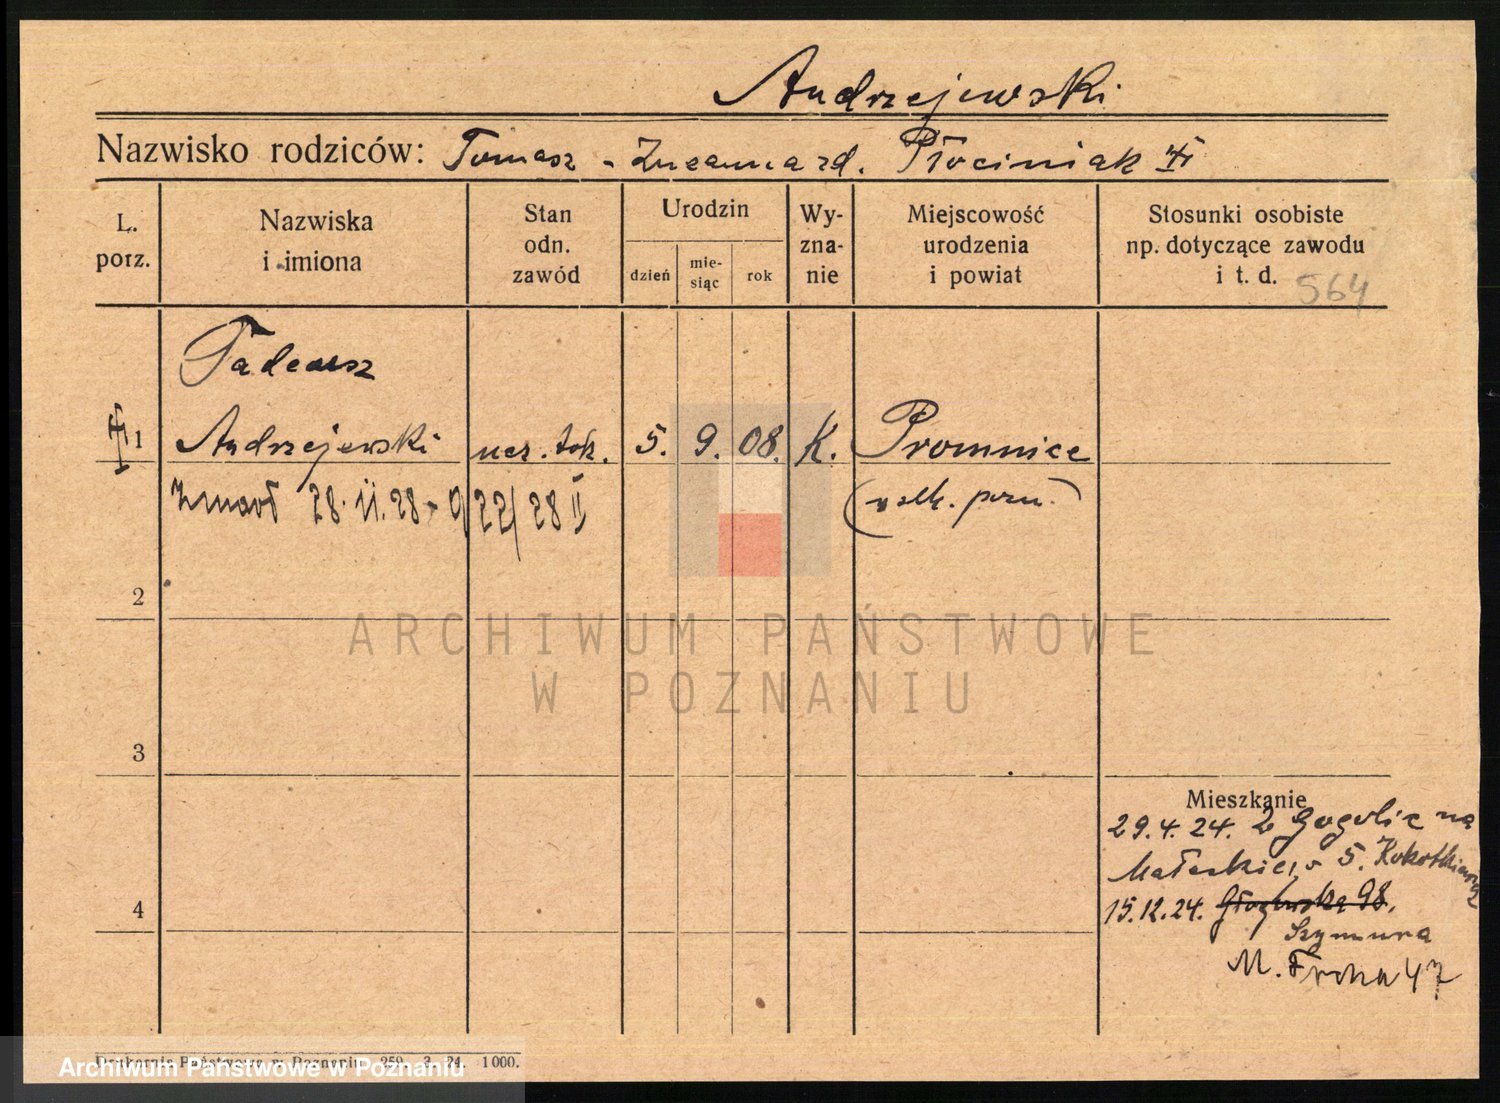 Andrzejewski
Nazwisko rodziców: Tomasz - Zuzanna zd. Płóciniak
L. porz.
Nazwiska i imiona
Stan odn. zawód
Urodzin
dzień
mie-siąc
rok
Wy-zna-nie
Miejscowość urodzenia i powiat
Stosunki osobiste np. dotyczące zawodu i t. d.
564
Tadeusz
1 Andrzejewski ucz. tok. 5. 9. 08. K. Promnice
Zmarł 28. II. 28 - 922/28 II
pozn.
2
3
Mieszkanie
29.4.24. z Gogolic na
Małeckiego 5.
4
15.12.24. 98.
Szymura
M. Focha 47
Drukarnia Państwowa w Poznaniu 259. 3. 24. 1000.
ARCHIWUM PAŃSTWOWE
W POZNANIU
Archiwum Państwowe w Poznaniu